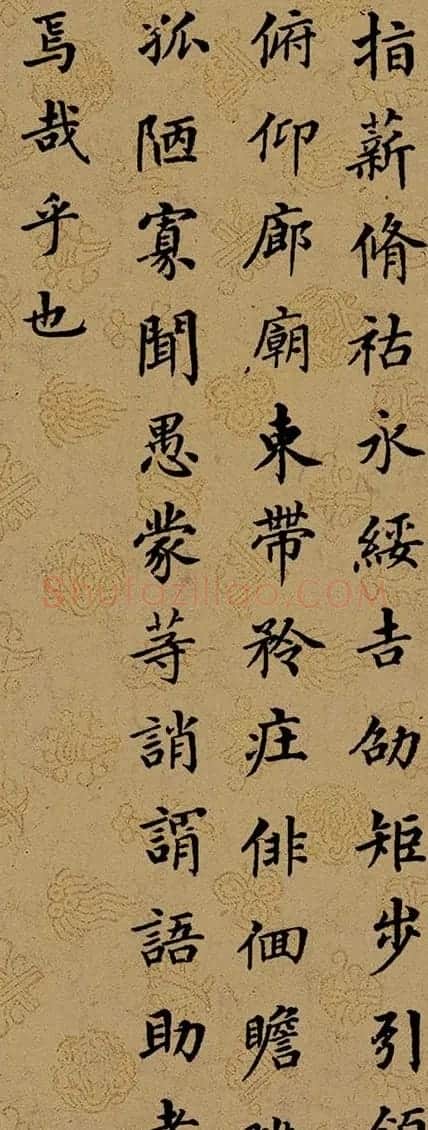 指薪脩祜永綏吉劭矩步引領
俯仰廊廟束帶矜庄俳佪瞻
孤陋寡聞愚蒙等誚謂語助者
焉哉乎也
Shufaziliao.COM